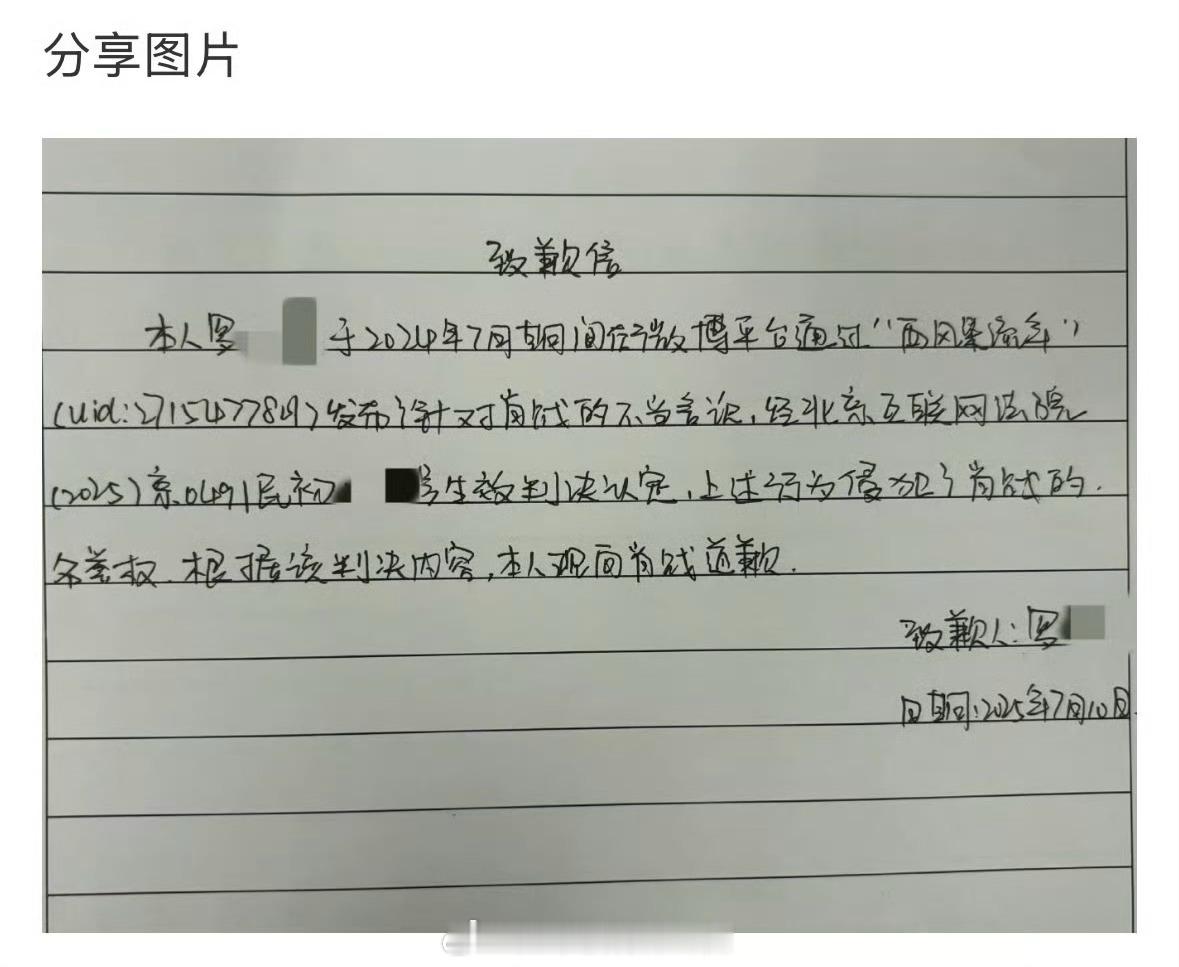 分享图片
致歉信
本人罗 于2024年7月期间在微博平台通过“西风累流年”
(uid:2715477849)发布了针对肖战的不当言论,经北京互联网法院
(2025)京0491民初 号生效判决认定,上述行为侵犯了肖战的.
名誉权.根据该判决内容,本人现向肖战道歉.
致歉人:罗
日期:2025年7月10日.